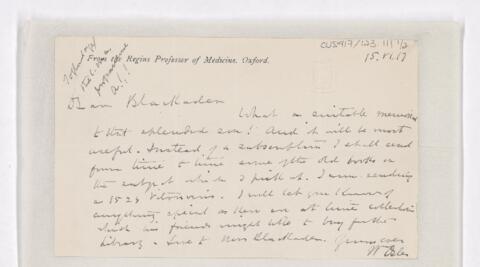 CUS417/123.11/1/2
15.VI.17
From the Regius Professor of Medicine, Oxford.
Dear Blackader
What a suitable memorial
to that splendid son! And it will be most
useful. Instead of a subscription I shall send
from time to time some of the old books on
the subject which I pick up. I am sending
a 1524 Vitruvius. I will let you know of
anything special as there are at times collections
which our friends might like to buy for the
Library. Love to Mrs Blackader. Yours ever
W Osler